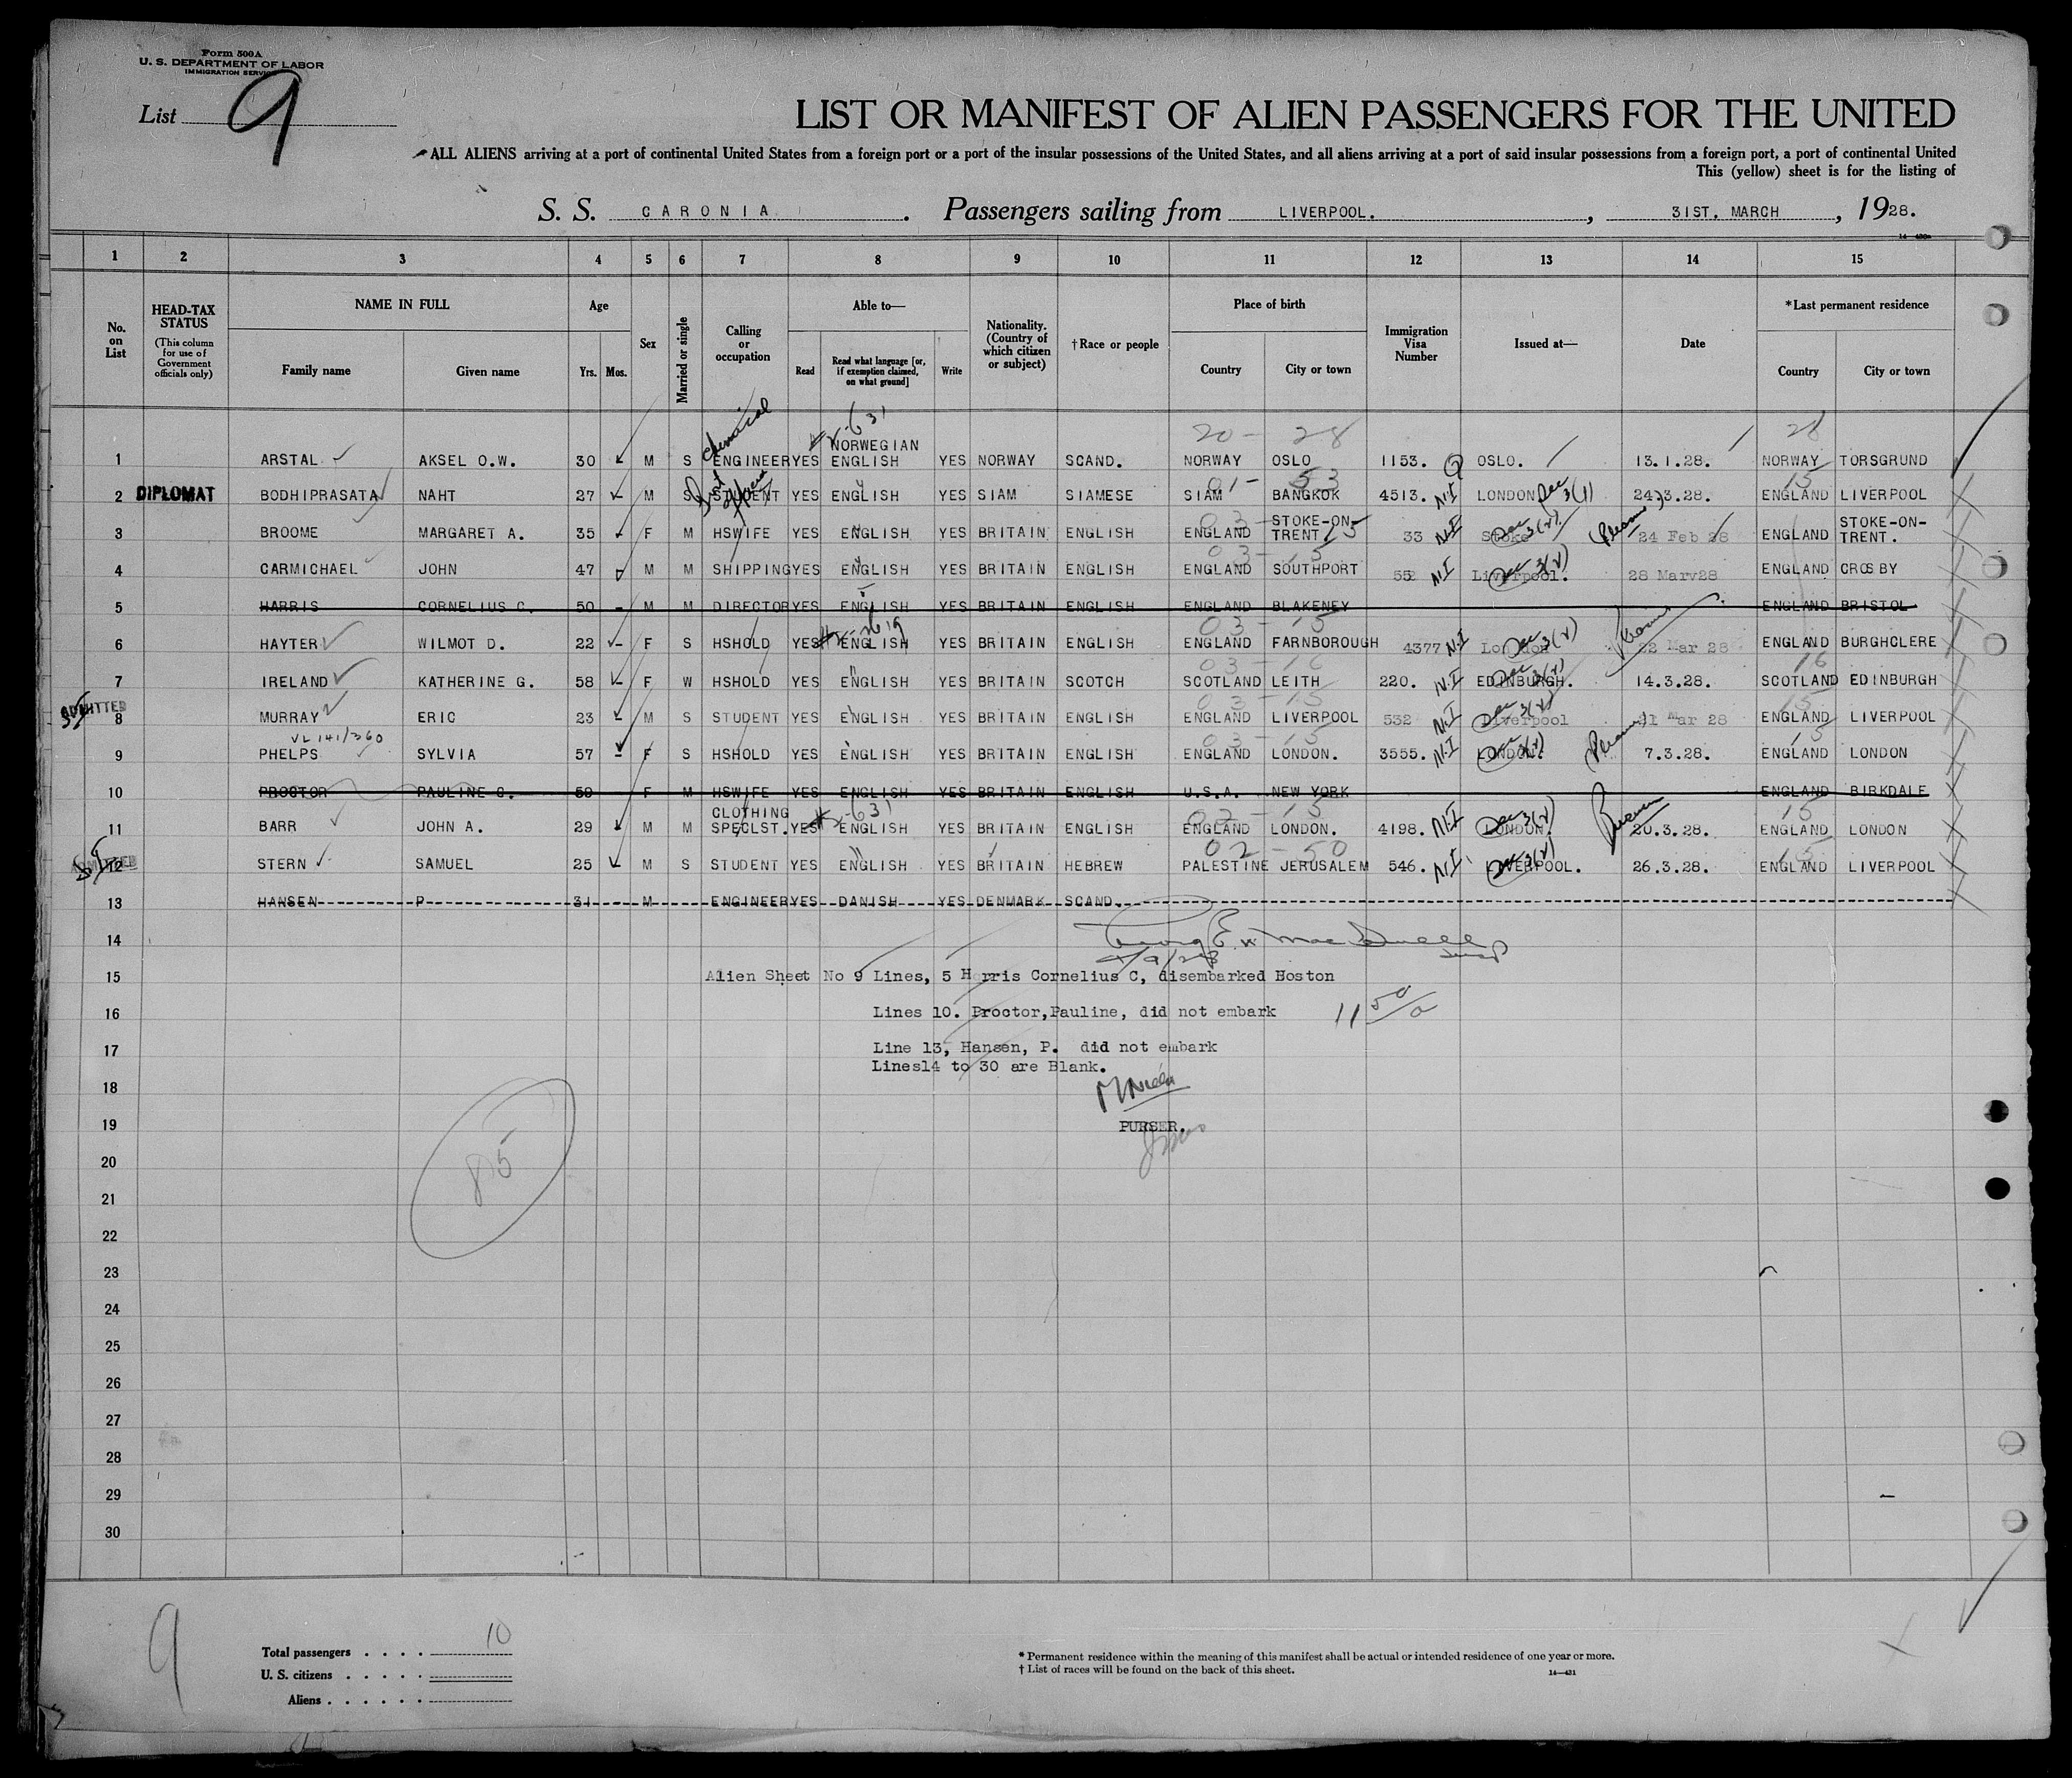 Form 500A
U. S. DEPARTMENT OF LABOR
IMMIGRATION SERVICE
List 9
LIST OR MANIFEST OF ALIEN PASSENGERS FOR THE UNITED
ALL ALIENS arriving at a port of continental United States from a foreign port or a port of the insular possessions of the United States, and all aliens arriving at a port of said insular possessions from a foreign port, a port of continental United
This (yellow) sheet is for the listing of
S. S. CARONIA. Passengers sailing from LIVERPOOL., 31ST. MARCH, 1928.
1 2 3 4 5 6 7 8 9 10 11 12 13 14 15
No. on List
HEAD-TAX STATUS (This column for use of Government officials only)
NAME IN FULL Family name Given name
Age Yrs. Mos.
Sex
Married or single
Calling or occupation
Able to— Read Read what language [or, if exemption claimed, on what ground] Write
Nationality. (Country of which citizen or subject)
†Race or people
Place of birth Country City or town
Immigration Visa Number
Issued at—
Date
*Last permanent residence Country City or town
20 - 28 28
1 ARSTAL AKSEL O.W. 30 M S Chemical ENGINEER YES NORWEGIAN ENGLISH YES NORWAY SCAND. NORWAY OSLO 1153. OSLO. 13.1.28. NORWAY TORSGRUND
01 - 53 15
2 DIPLOMAT BODHIPRASATA NAHT 27 M S STUDENT YES ENGLISH YES SIAM SIAMESE SIAM BANGKOK 4513. N.I LONDON 24.3.28. ENGLAND LIVERPOOL
3 BROOME MARGARET A. 35 F M HSWIFE YES ENGLISH YES BRITAIN ENGLISH ENGLAND STOKE-ON-TRENT 33 N.I Stoke 24 Feb 28 ENGLAND STOKE-ON-TRENT.
03 - 15
4 CARMICHAEL JOHN 47 M M SHIPPING YES ENGLISH YES BRITAIN ENGLISH ENGLAND SOUTHPORT 552 N.I Liverpool. 28 Marv28 ENGLAND CROSBY
5 HARRIS CORNELIUS C. 50 - M M DIRECTOR YES ENGLISH YES BRITAIN ENGLISH ENGLAND BLAKENEY ENGLAND BRISTOL
03 - 15
6 HAYTER WILMOT D. 22 - F S HSHOLD YES ENGLISH YES BRITAIN ENGLISH ENGLAND FARNBOROUGH 4377 N.I London 22 Mar 28 ENGLAND BURGHCLERE
03 - 16 16
7 IRELAND KATHERINE G. 58 - F W HSHOLD YES ENGLISH YES BRITAIN SCOTCH SCOTLAND LEITH 220. N.I EDINBURGH. 14.3.28. SCOTLAND EDINBURGH
03 - 15 15
ADMITTED
8 MURRAY ERIC 23 - M S STUDENT YES ENGLISH YES BRITAIN ENGLISH ENGLAND LIVERPOOL 532 N.I Liverpool 21 Mar 28 ENGLAND LIVERPOOL
03 - 15 15
9 PHELPS SYLVIA 57 - F S HSHOLD YES ENGLISH YES BRITAIN ENGLISH ENGLAND LONDON. 3555. N.I LONDON. 7.3.28. ENGLAND LONDON
10 PROCTOR PAULINE C. 59 F M HSWIFE YES ENGLISH YES BRITAIN ENGLISH U.S.A. NEW YORK ENGLAND BIRKDALE
15
11 BARR JOHN A. 29 M M CLOTHING SPECLST. YES ENGLISH YES BRITAIN ENGLISH ENGLAND LONDON. 4198. N.I LONDON. 20.3.28. ENGLAND LONDON
02 - 50 15
12 STERN SAMUEL 25 M S STUDENT YES ENGLISH YES BRITAIN HEBREW PALESTINE JERUSALEM 546. N.I LIVERPOOL. 26.3.28. ENGLAND LIVERPOOL
13 HANSEN P 31 - M ENGINEER YES DANISH YES DENMARK SCAND.
14
15 Alien Sheet No 9 Lines, 5 Harris Cornelius C, disembarked Boston
16 Lines 10. Proctor, Pauline, did not embark
17 Line 13, Hansen, P. did not embark
Lines14 to 30 are Blank.
18
19 PURSER.
20
21
85
22
23
24
25
26
27
28
29
30
9
Total passengers . . . . 10
U. S. citizens . . . . .
Aliens . . . . . .
* Permanent residence within the meaning of this manifest shall be actual or intended residence of one year or more.
† List of races will be found on the back of this sheet.
14—431